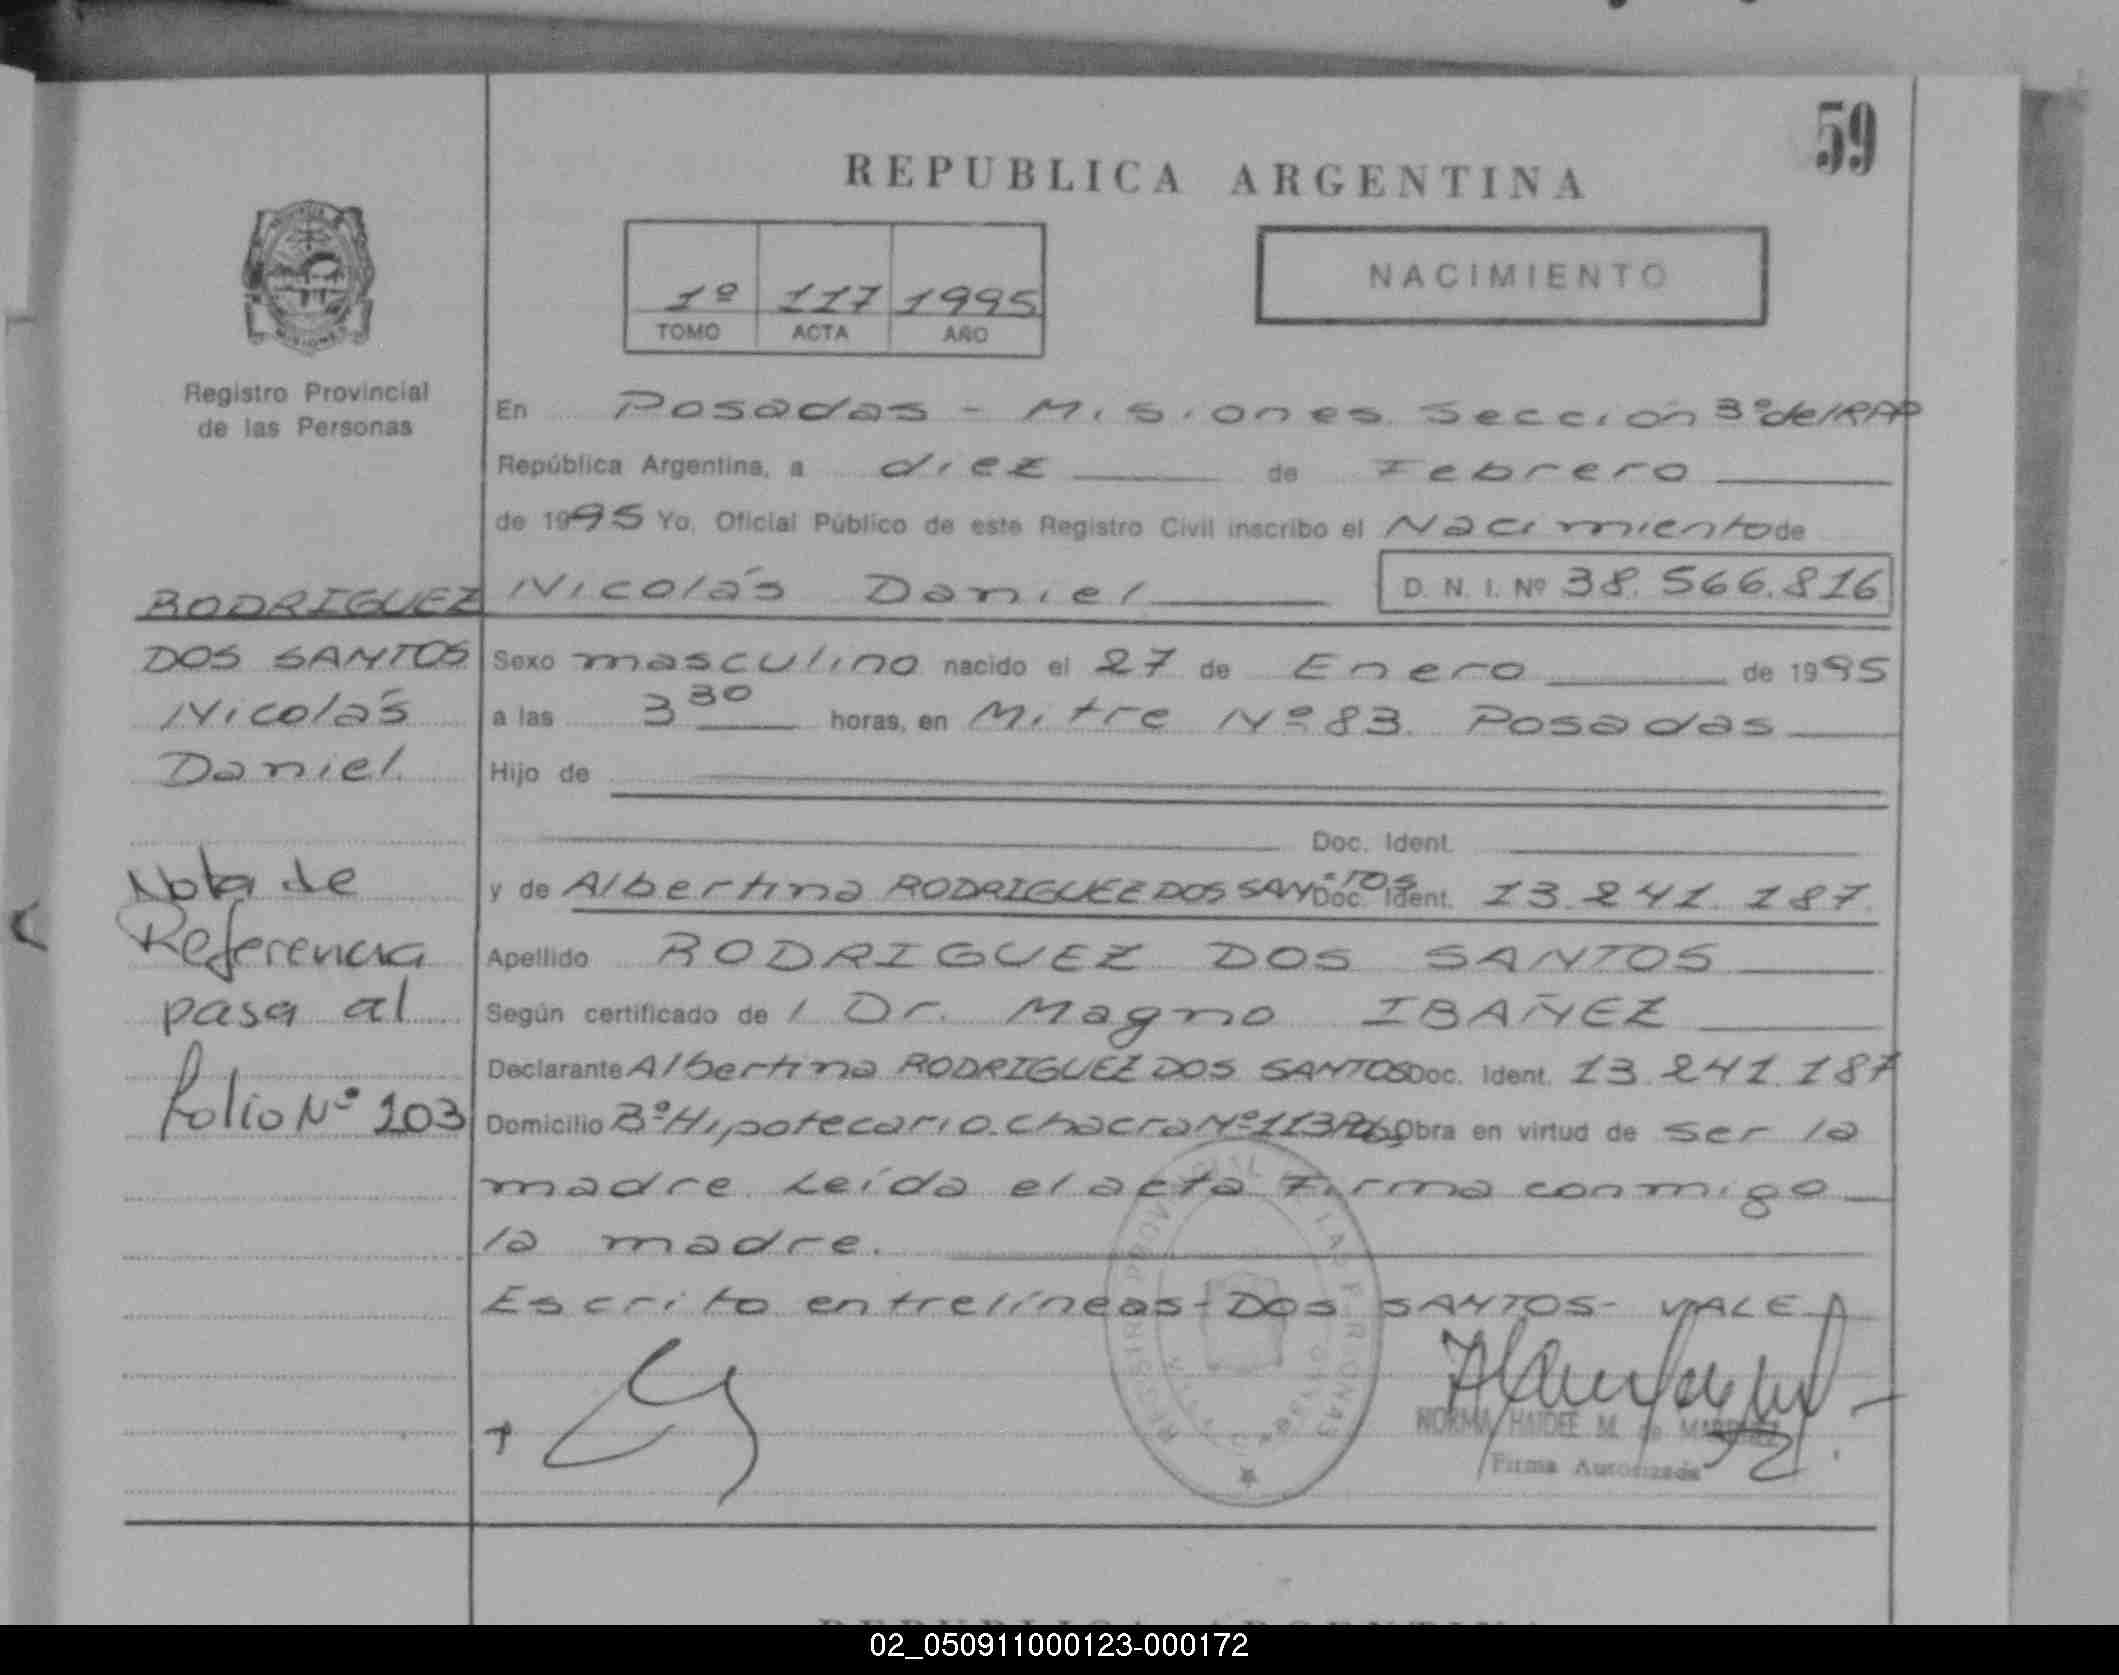 59
REPUBLICA ARGENTINA
NACIMIENTO
1º 117 1995
TOMO ACTA AÑO
Registro Provincial
de las Personas
En Posadas - Misiones. Sección 3º del RPP
República Argentina, a diez de Febrero
de 1995 Yo, Oficial Público de este Registro Civil inscribo el Nacimiento de
Nicolás Daniel D. N. I. Nº 38.566.816
RODRIGUEZ
DOS SANTOS
Nicolás
Daniel.
Sexo masculino nacido el 27 de Enero de 1995
a las 3 30 horas, en Mitre Nº 83. Posadas
Hijo de
Doc. Ident.
y de Albertina RODRIGUEZ DOS SANTOS Doc. Ident. 13.241.187.
Apellido RODRIGUEZ DOS SANTOS
Según certificado del Dr. Magno IBAÑEZ
Declarante Albertina RODRIGUEZ DOS SANTOS Doc. Ident. 13.241.187
Domicilio Bº Hipotecario. Chacra Nº 113 Obra en virtud de ser la
madre. Leída el acta firma conmigo
la madre.
Escrito entrelíneas - DOS SANTOS - VALE
Nota de
Referencia
pasa al
folio Nº 203
REGISTRO PROVINCIAL DE LAS PERSONAS
NORMA HAIDEE M. de
Firma Autorizada
REPUBLICA ARGENTINA
02_050911000123-000172